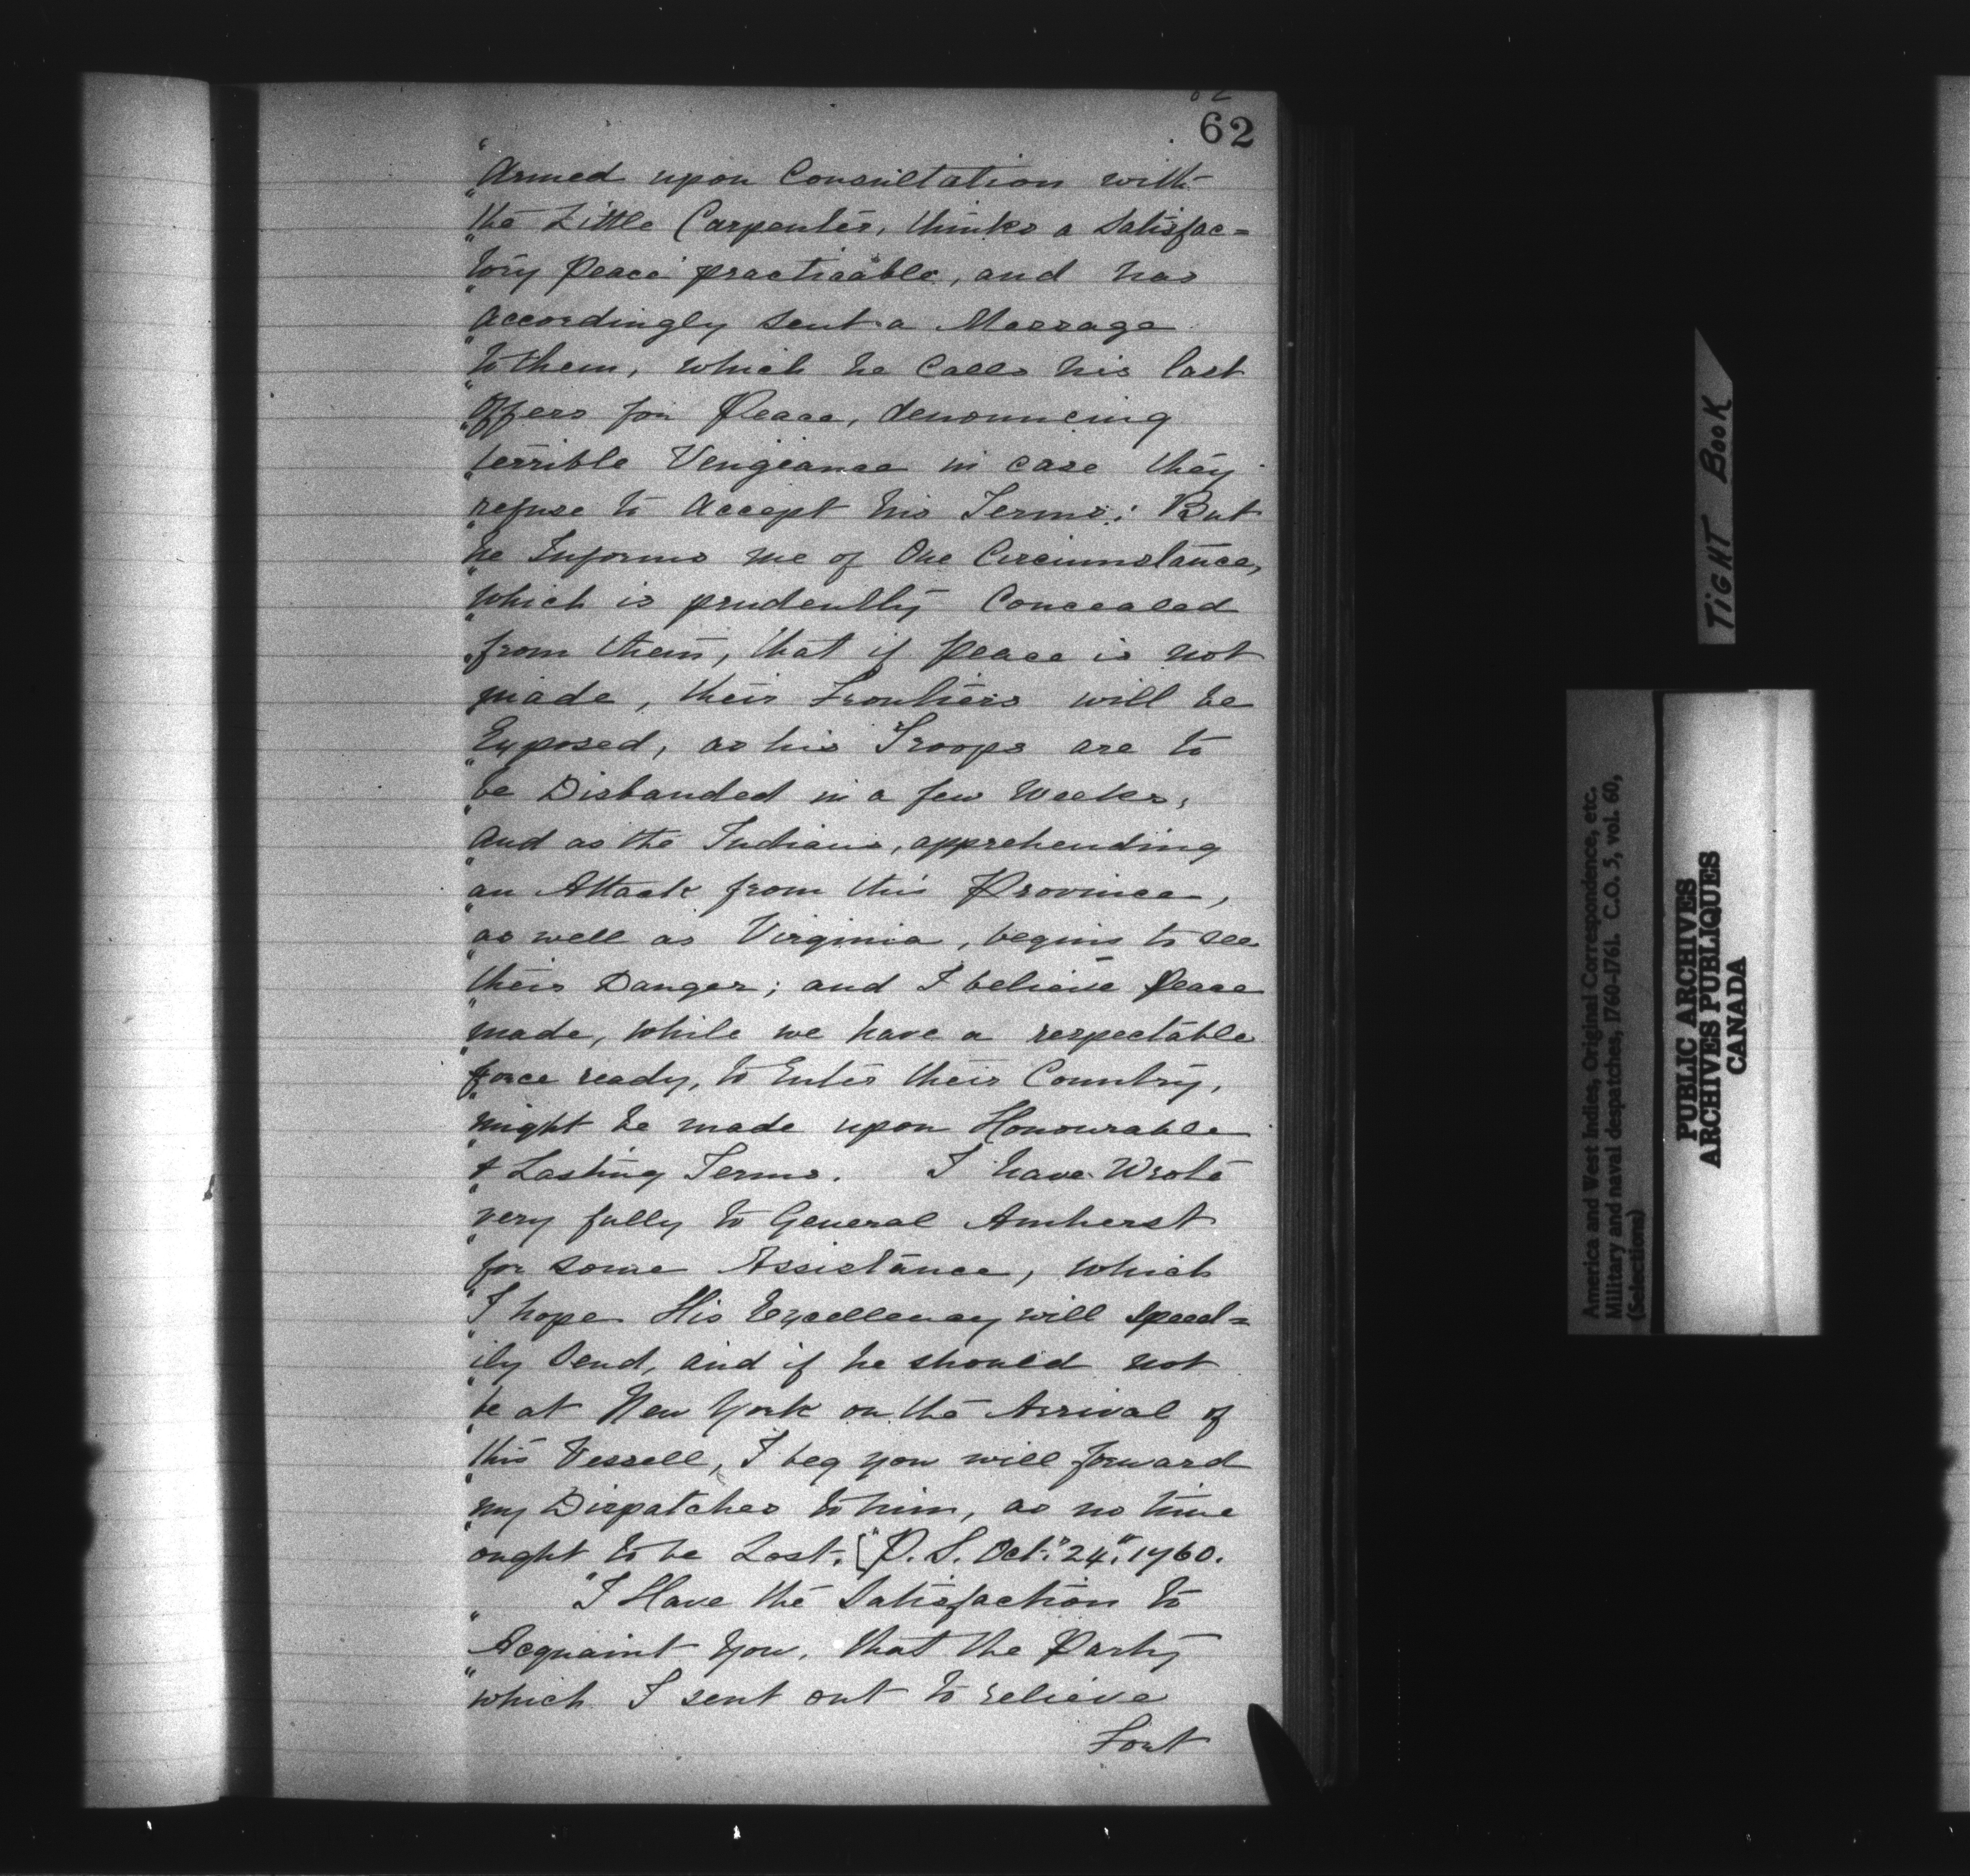 62
62
"Armed upon Consultation with
"the Little Carpenter, thinks a Satisfac=
"tory Peace practicable, and has
"accordingly sent a Message
"to them, which he Calls his last
"Offers for Peace, denouncing
"terrible Vengeance in case they
"refuse to Accept his Terms: But
"he Informs me of One Circumstance,
"which is prudently Concealed
"from them, that if Peace is not
"made, their Frontiers will be
"Exposed, as his Troops are to
"be Disbanded in a few Weeks,
"and as the Indians, apprehending
"an Attack from this Province,
"as well as Virginia, begins to see
"their Danger; and I believe Peace
"made, while we have a respectable
"force ready, to Enter their Country,
"might be made upon Honourable
"& Lasting Terms. I have Wrote
"very fully to General Amherst
"for some Assistance, which
"I hope His Excellency will speed=
"ily Send, and if he should not
"be at New York on the Arrival of
"this Vessell, I beg you will forward
"my Dispatches to him, as no time
"ought to be Lost. ["P.S. Oct: "24". 1760.
"I Have the Satisfaction to
"Acquaint You, that the Party
"which I sent out to relieve
Fort
TIGHT BOOK
America and West Indies, Original Correspondence, etc.
Military and naval despatches, 1760-1761. C.O. 5, vol. 60,
(Selections)
PUBLIC ARCHIVES
ARCHIVES PUBLIQUES
CANADA